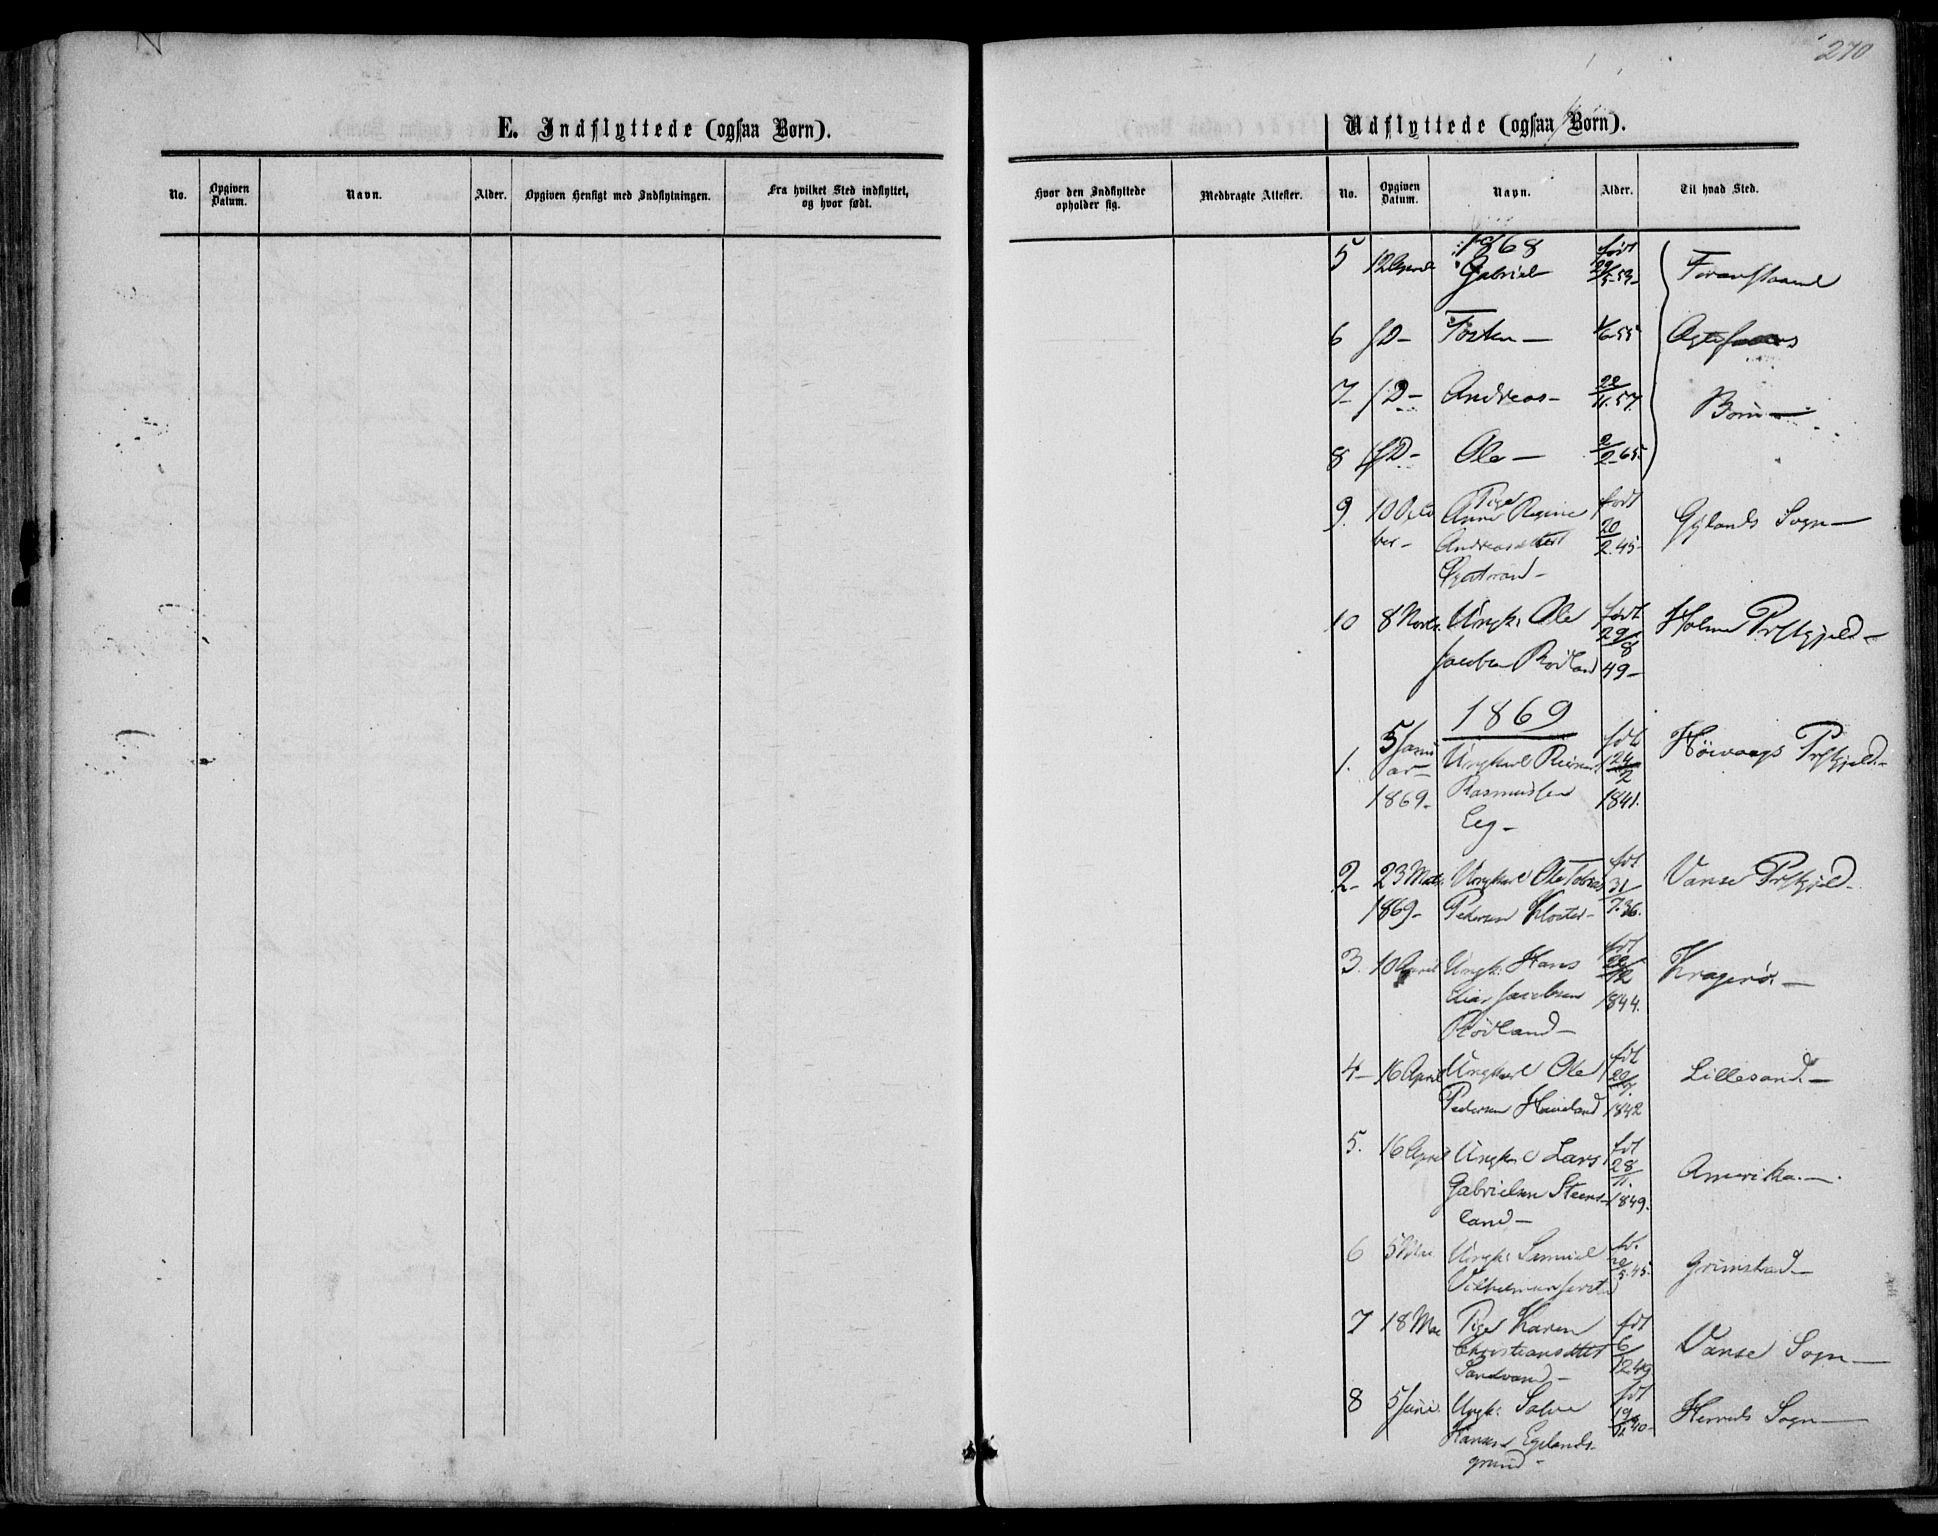 270
E. Indflyttede (ogsaa Børn).
No. Opgiven Datum. Navn. Alder. Opgiven Hensigt med Indflytningen. Fra hvilket Sted indflyttet, og hvor født.
Udflyttede (ogsaa Børn).
Hvor den Indflyttede opholder sig. Medbragte Attester. No. Opgiven Datum. Navn. Alder. Til hvad Sted.
1868
5 12 April Gabriel født 29/5-53- Foranstaaende
6 D- Tosten- 1/6 55 Ægtefolks
7- D- Andreas- 22/11.57. Børn-
8 D- Ole- 2/2-65-
9. 10 Octo Pige født
ber- Anne Regine 20/2.45- Gylands Sogn-
Andreasdatter
10 8 Novbr. Ungk: Ole født Holme Prstgjeld-
Jacobsen Rødland 29/8 49-
1869
1. 5 Janu Ungkarl Reier fdt Høivaags Prstgjeld-
ar- Rasmussen 24/2
1869- Eeg- 1841.
2- 23 Marts Ungkarl Ole Tobias fdt 31/7.36. Vanse Prstgjeld-
1869- Pedersen Kloster-
3. 10 April Ungk: Hans fdt Kragerø.-
Elias Jacobsen 1844.
Rødland-
4- 16 April Ungkarl Ole fdt Lillesand.-
Pedersen 1842
5. 16 April Ungkarl Lars fdt Amerika.-
Gabrielsen Steens 28/11.
land- 1849.
6 5 Mai Ungk: Samuel fdt. Grimstad-
5.45-
7 18 Mai Pige Karen fdt Vanse Sogn-
Christiansdatter 6/12.49
Sandvand-
8 5 Juni. Ungk: Salve fdt Herreds Sogn-
Hansen Egelands- 19/11 40-
grund-